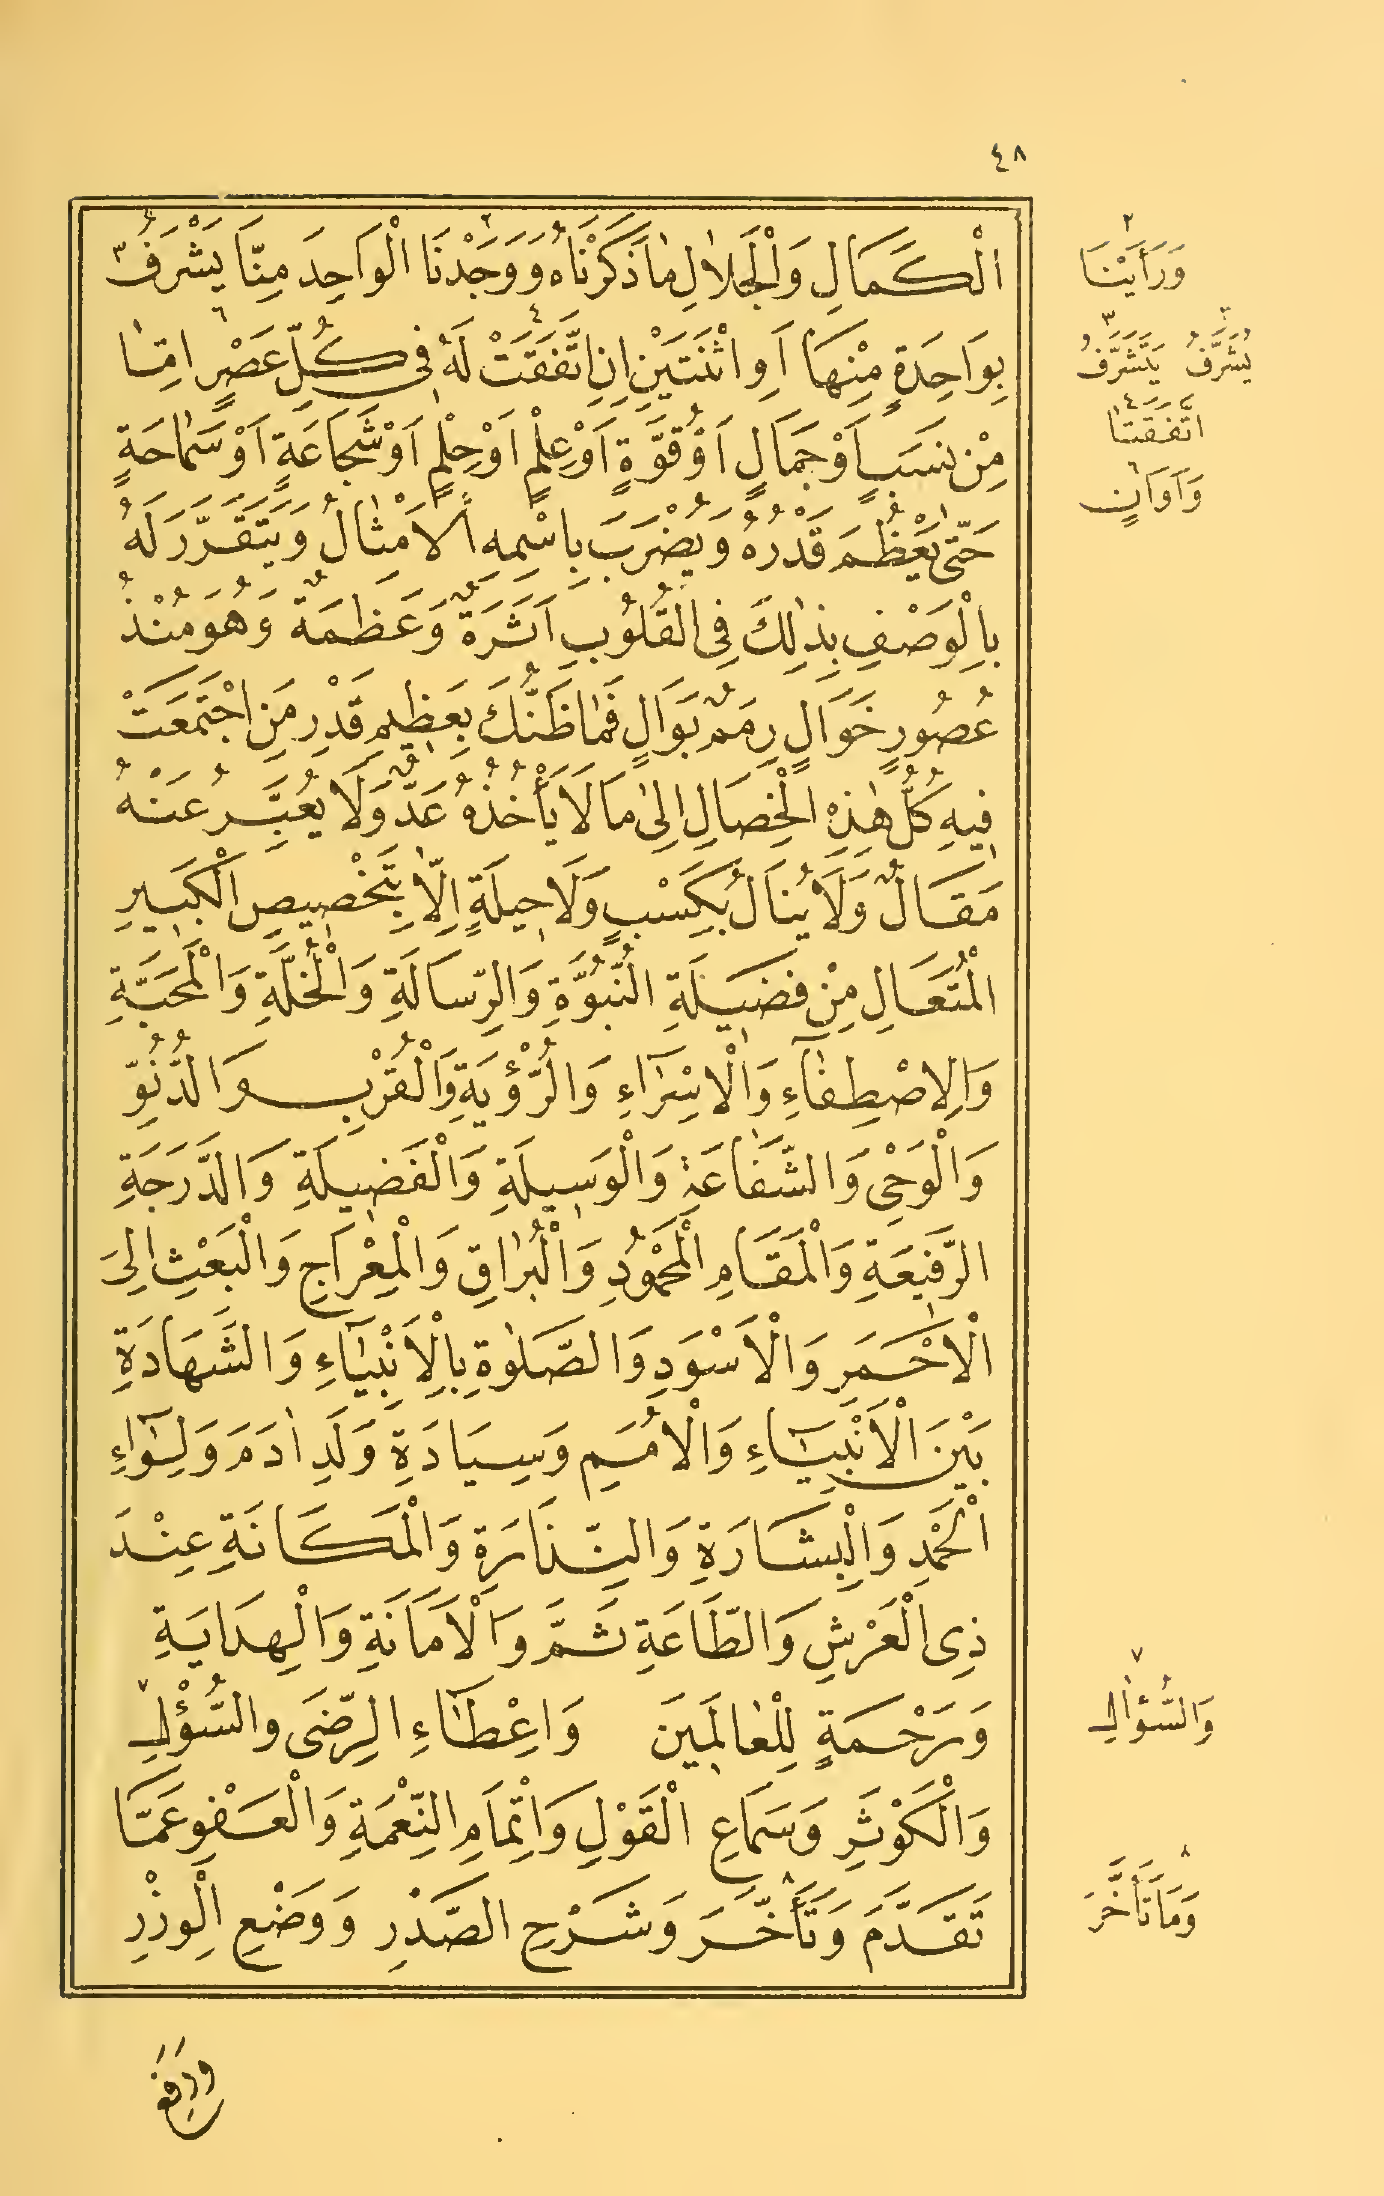 ٤٨
الْكَمَالِ وَالْجَلَالِ مَا ذَكَرْنَاهُ وَوَجَدْنَا٢ الْوَاحِدَ مِنَّا يَشْرُفُ٣
بِوَاحِدَةٍ مِنْهَا اَوِ اثْنَتَيْنِ اِنِ اتَّفَقَتْ٤ لَهُ فِي كُلِّ عَصْرٍ٦ اِمَّا
مِنْ نَسَبٍ اَوْ جَمَالٍ اَوْ قُوَّةٍ اَوْ عِلْمٍ اَوْ حِلْمٍ اَوْ شَجَاعَةٍ اَوْ سَمَاحَةٍ
حَتّٰى يَعْظُمَ قَدْرُهُ وَيُضْرَبَ بِاسْمِهِ الْاَمْثَالُ وَيَتَقَرَّرَ لَهُ
بِالْوَصْفِ بِذٰلِكَ فِى الْقُلُوبِ اَثَرَةٌ وَعَظَمَةٌ وَهُوَ مُنْذُ
عُصُورٍ خَوَالٍ رِمَمٌ بَوَالٍ فَمَا ظَنُّكَ بِعَظِيمِ قَدْرِ مَنِ اجْتَمَعَتْ
فِيهِ كُلُّ هٰذِهِ الْخِصَالِ اِلٰى مَا لَا يَأْخُذُهُ عَدٌّ وَلَا يُعَبِّرُ عَنْهُ
مَقَالٌ وَلَا يُنَالُ بِكَسْبٍ وَلَا حِيلَةٍ اِلَّا بِتَخْصِيصِ الْكَبِيرِ
الْمُتَعَالِ مِنْ فَضِيلَةِ النُّبُوَّةِ وَالرِّسَالَةِ وَالْخُلَّةِ وَالْمَحَبَّةِ
وَالِاصْطِفَاءِ وَالْاِسْرَاءِ وَالرُّؤْيَةِ وَالْقُرْبِ وَالدُّنُوِّ
وَالْوَحْىِ وَالشَّفَاعَةِ وَالْوَسِيلَةِ وَالْفَضِيلَةِ وَالدَّرَجَةِ
الرَّفِيعَةِ وَالْمَقَامِ الْمَحْمُودِ وَالْبُرَاقِ وَالْمِعْرَاجِ وَالْبَعْثِ اِلَى
الْاَحْمَرِ وَالْاَسْوَدِ وَالصَّلٰوةِ بِالْاَنْبِيَاءِ وَالشَّهَادَةِ
بَيْنَ الْاَنْبِيَاءِ وَالْاُمَمِ وَسِيَادَةِ وَلَدِ اٰدَمَ وَلِوَاءِ
الْحَمْدِ وَالْبِشَارَةِ وَالنِّذَارَةِ وَالْمَكَانَةِ عِنْدَ
ذِى الْعَرْشِ وَالطَّاعَةِ ثَمَّ وَالْاَمَانَةِ وَالْهِدَايَةِ
وَرَحْمَةٍ لِلْعَالَمِينَ وَاِعْطَاءِ الرِّضَى وَالسُّؤْلِ٧
وَالْكَوْثَرِ وَسَمَاعِ الْقَوْلِ وَاِتْمَامِ النِّعْمَةِ وَالْعَفْوِ عَمَّا
تَقَدَّمَ وَتَأَخَّرَ٨ وَشَرْحِ الصَّدْرِ وَوَضْعِ الْوِزْرِ
وَرَفْعِ
٢
وَرَأَيْنَا
٣
يُشَرَّفُ يَتَشَرَّفُ
٤
اتَّفَقَتَا
٦
وَاَوَانٍ
٧
وَالسُّؤَالِ
٨
وَمَا تَأَخَّرَ